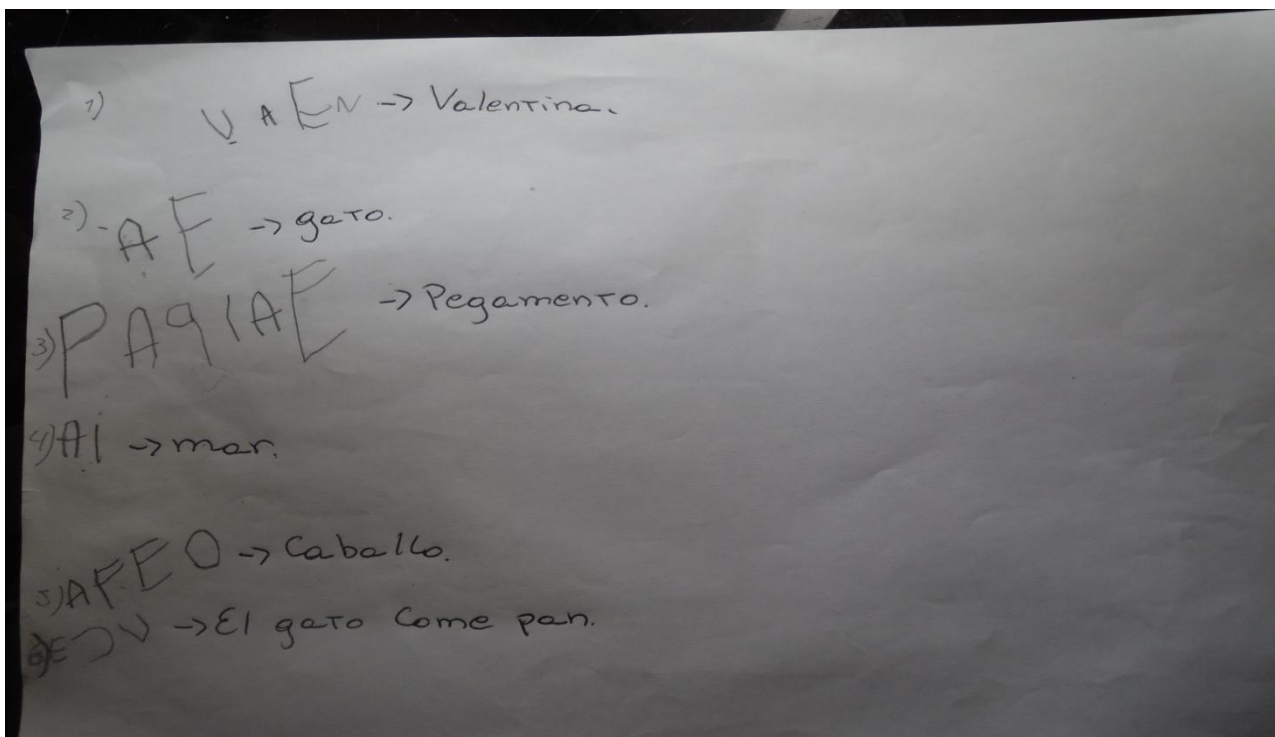 1) VAEN -> Valentina.
2) - AE -> gato.
3) PAGIAE -> Pegamento.
4) AI -> mar.
5) AFEO -> Caballo.
6) -> El gato Come pan.